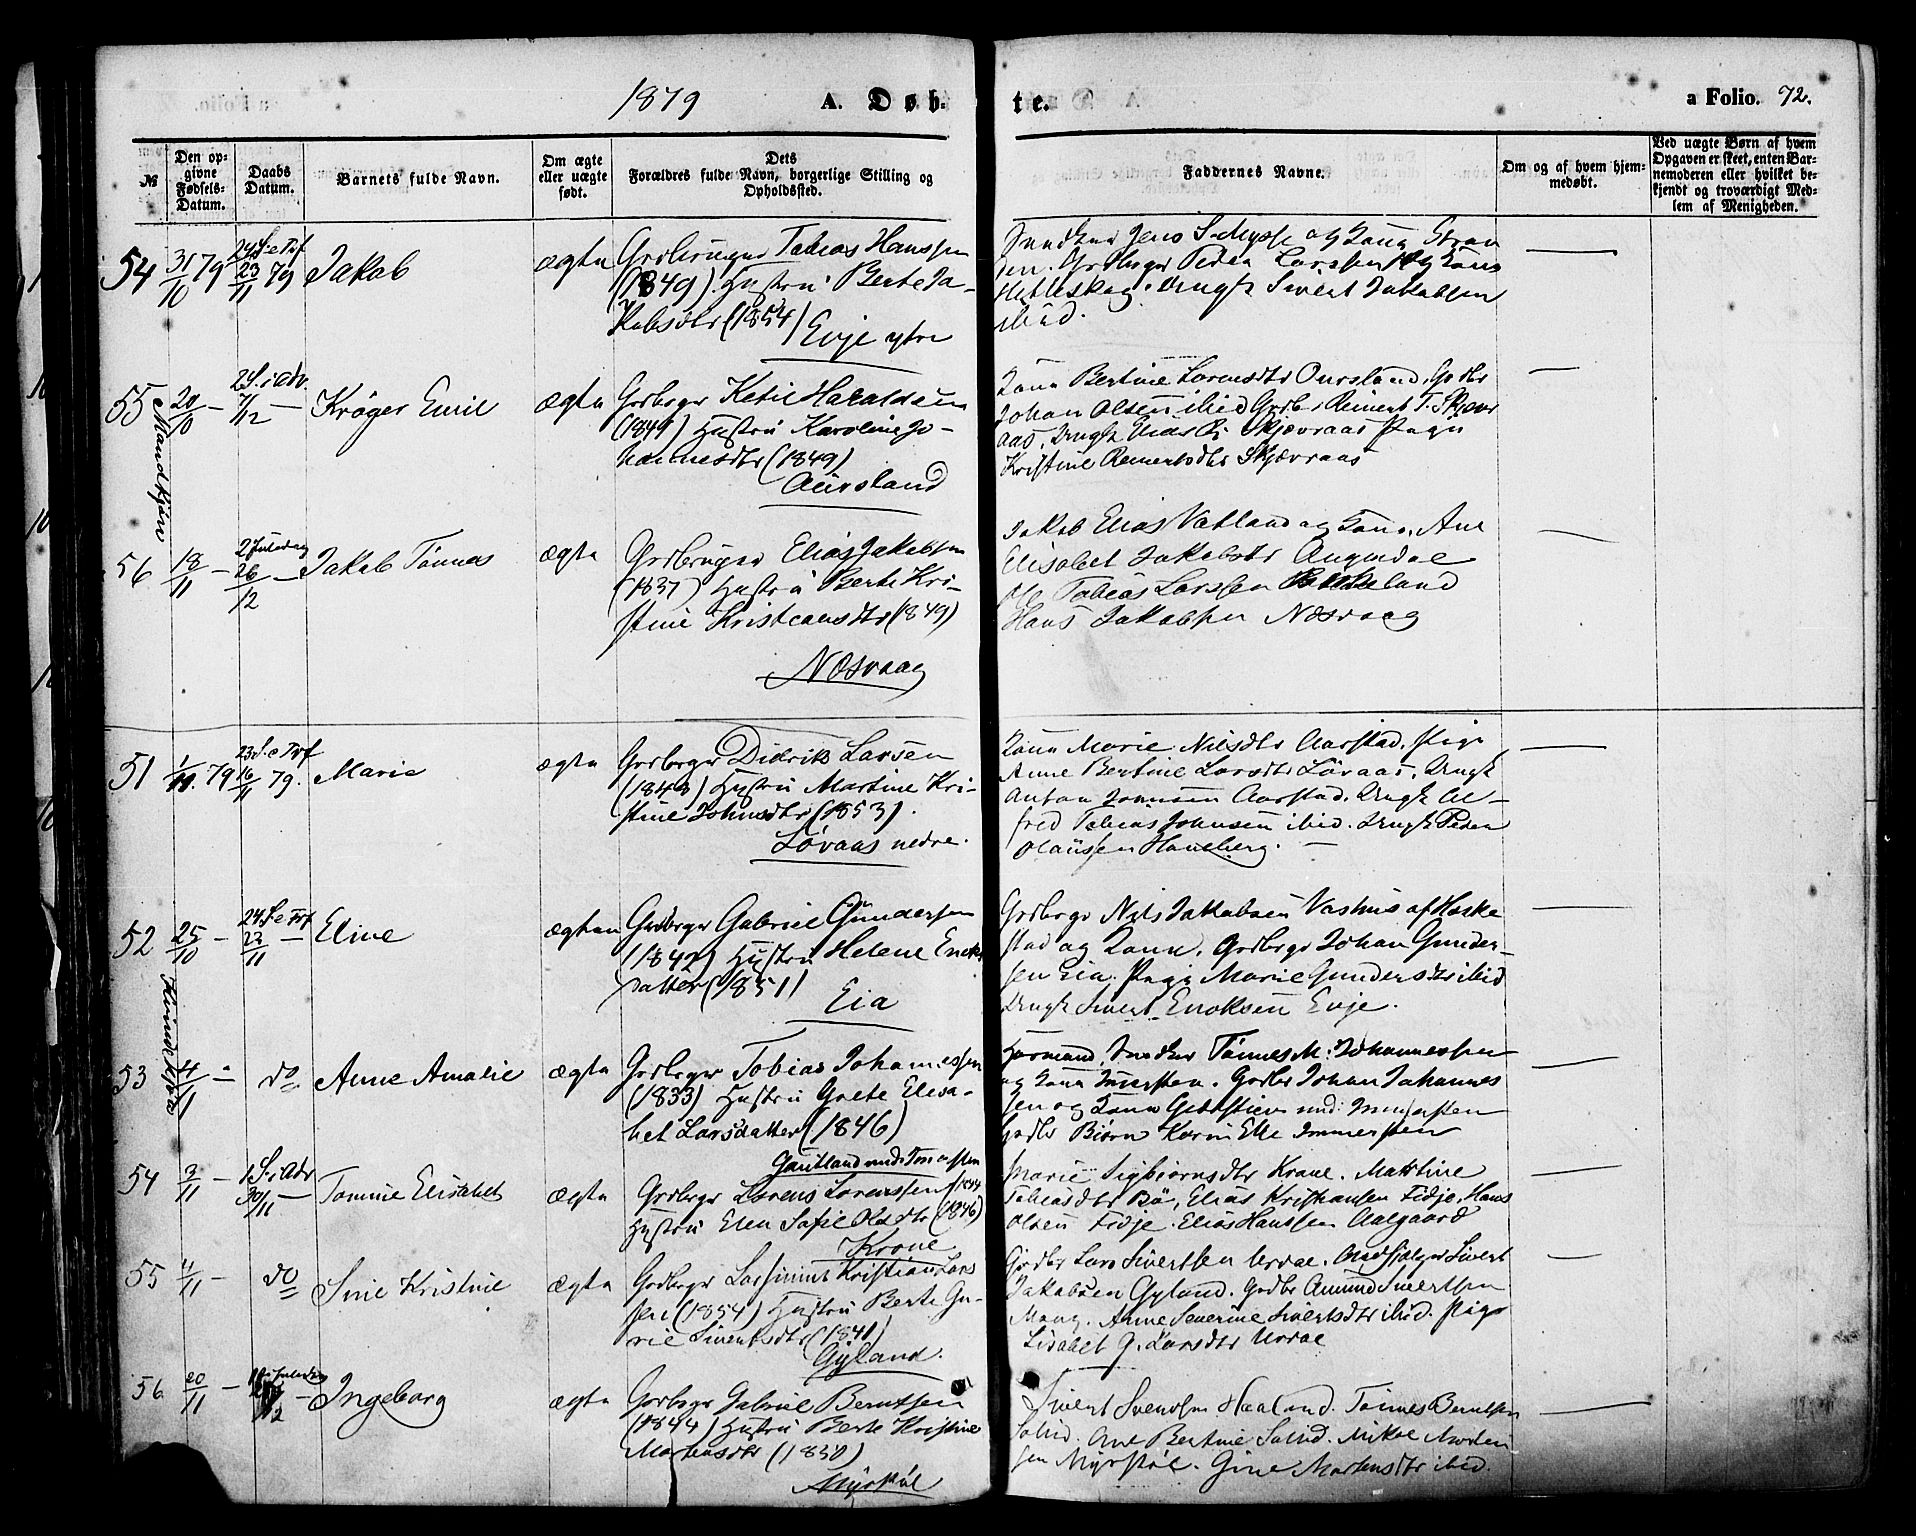 1879 A. Døb-
te. a Folio. 72.
№
Den op-
givne
Fødsels-
Datum.
Daabs
Datum.
Barnets fulde Navn.
Om ægte
eller uægte
født.
Dets
Forældres fulde Navn, borgerlige Stilling og
Opholdssted.
Faddernes Navne.
Om og af hvem hjem-
medøbt.
Ved uægte Børn af hvem
Opgaven er skeet, enten Bar-
nemoderen eller hvilket be-
kjendt og troværdigt Med-
lem af Menigheden.
Mandkjøn
54 31/10 79 24 S. e Trf 23/11 79 Jakob ægte
Grdbruger Tobias Hanssen
(1849). Hustru Berte Ja-
kobsdtr (1854)
Evje ytre
Jens og Kone
Grdbrger Peder Larssen og Kone
Sivert Jakobsen
ibid.
55 20/10 — 2 S. i Adv. 7/12 — Krøger Emil ægte
Grdbrger Ketil Haraldsen
Hustru Karoline Jo-
hannesdtr (1849)
Aursland
Kone Bertine Larensdtr Oursland. Grdbr
Johan Olsen ibid Grdbr Reinert T. Skjævr
aas. Ungk Elias Skjævraas Pige
Kristine Reinertsdtr Skjævraas
56 18/11 — 2 Juledag 26/12 — Jakob Tønnes ægte
Grdbruger Elias Jakobsen
(1837) Hustru Berte Kri-
stine Kristensdtr (1849)
Næsvaag
Jakob Elias Vatland og Kone. Ane
Elisabet Jakobsdtr Aagedal
Tobias Larssen
Hans Jakobsen Næsvaag
Kvindekjøn
51 1/11. 79 23 S. e Trf 16/11 79. Marie ægte
Grdbrger Didrik Larsen
(1843) Hustru Martine Kri-
stine Johnsdtr (1853).
Løvaas nedre.
Kone Marie Nilsdtr Aarstad. Pige
Anne Bertine Larsdtr Løvaas. Ungk
Anton Johnsen Aarstad. Ungk Al-
fred Tobias Johnsen ibid. Ungk Peder
Olaussen Haneberg. —
52 25/10 — 24 S. e Trf 23/11 — Eline ægte
Grdbrger Gabriel Gundersen
(1842) Hustru Helene Enoks
datter (1851)
Eia
Grdbrgr Nils Jakobsen Vashus af Heske
stad og Kone. Grdbrgr Johan Gunder-
sen Eia. Pige Marie Gundersdtr ibid
Ungk Sivert Enoksen Evje.
53 4/11 — do Anne Amalie ægte
Grdbrger Tobias Johannessen
(1833) Hustru Grete Elisa-
bet Larsdatter (1846)
Gautland
Formand Tønnes M. Johannessen
og Kone Grdbr Johan Johannes
sen og Kone
Grdbr Bjørn
54 3/11 1 S. i Adv 30/11 — Tomine Elisabet ægte
Grdbrger Lorens Lorenssen
Hustru Elen Sofie Olsdtr (1846)
Krone
Marie Sigbjørnsdtr Krone. Martine
Tobiasdtr Bø, Elias Kristiansen Fidje, Hans
Olsen Fidje. Elias Hanssen Aalgaard
55 4/11 — do Sine Kristine ægte
Grdbrger Kristian Lars
sen (1854) Hustru Berte Gu-
rie Sivertsdtr (1841)
Gyland.
Grdbr Lars Sivertsen Urdal. Sivert
Jakobsen Gyland. Grdbr Amund Sivertsen
Anne Severine Sivertsdtr ibid. Pige
Lisabet G. Larsdtr Urdal
56 20/11 — 1ste Juledag 25/12 — Ingeborg ægte
Grdbrger Gabriel Berntsen
(1844) Hustru Berte Kristine
Mortensdtr (1850)
Myrstøl
Sivert Svendsen Haaland. Tønnes Berntsen
Sollid. Ane Bertine Solid. Mikal Morten
sen Myrstøl. Gine Mortensdtr ibid.